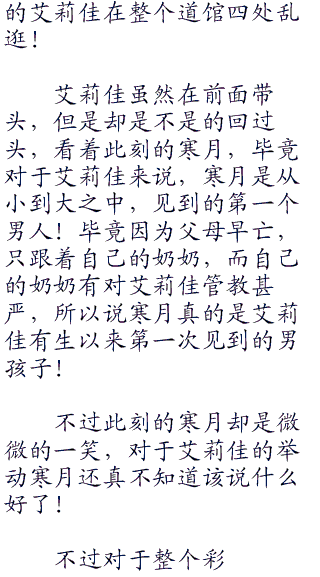 的艾莉佳在整个道馆四处乱
逛！
艾莉佳虽然在前面带
头，但是却是不是的回过
头，看着此刻的寒月，毕竟
对于艾莉佳来说，寒月是从
小到大之中，见到的第一个
男人！毕竟因为父母早亡，
只跟着自己的奶奶，而自己
的奶奶有对艾莉佳管教甚
严，所以说寒月真的是艾莉
佳有生以来第一次见到的男
孩子！
不过此刻的寒月却是微
微的一笑，对于艾莉佳的举
动寒月还真不知道该说什么
好了！
不过对于整个彩